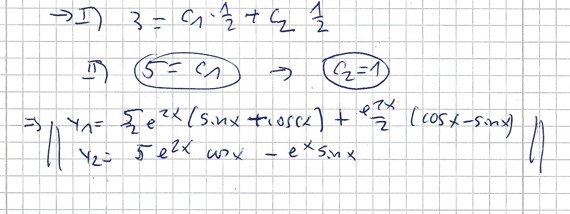 → I) 3 = c₁ · 1/2 + c₂ 1/2
II) 5 = c₁ → c₂ = 1
⇒ y₁ = 5/2 e^{2x} (sinx + cosx) + e^{2x}/2 (cosx - sinx)
y₂ = 5 e^{2x} cosx - e^x sinx